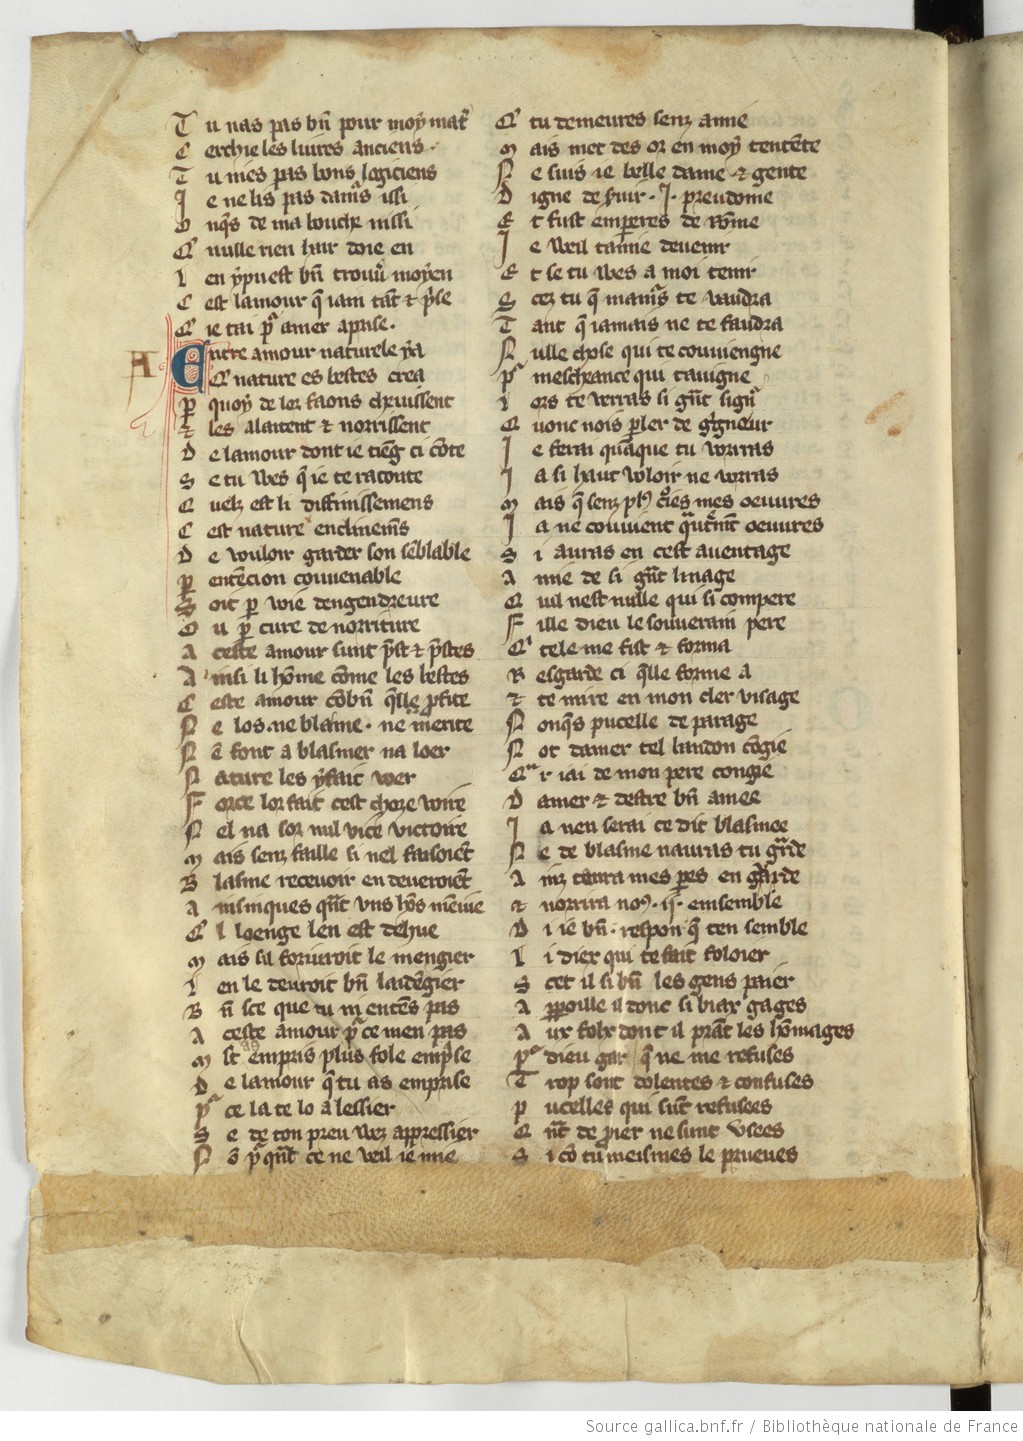 Tu nas pas bñ pour moy mat
Cerchie les liures anciens
Tu mes pas bons logiciens
Je ne lis pas damrs issi
Onqs de ma bouche nissi
Q nulle rien hair doie en
Len ypuest bñ trouur moyen
Cest lamour q̃ iam tāt & pse
Q ie tai pr amer aprise
Entre amour naturele ya
Q nature es bestes crea
p quoy de lor faons cheuissent
& les alaitent & norrissent
De lamour dont ie tieg ci cōte
Se tu wes q̃ ie te raconte
Quelx est li diffinissemens
Cest nature enclinemēs
De wuloir garder son sēblable
p entēcion couuenable
Soit p woie dengendreure
Ou p cure de norriture
A ceste amour sunt pst & pstes
Ainsi li hōme cōme les bestes
Ceste amour cōbñ qlle pfite
Ne los ne blame ne merite
Nē font a blasmer na loer
Nature les y fait woer
Force lor fait cest choze woire
Nel na sor nul vice victoire
Mais senz faille si nel faisoiēt
Blasme receuoir en deueroiēt
Ainsinques qñt vns hōs mēiue
Ql loenge len est dehue
Mais sil foriuroit le mengier
Len le deuroit bñ laidēgier
Bñ sce que tu ni entēs pas
A ceste amour pr ce men pas
Mlt empris plus fole empse
De lamour q̃ tu as emprise
pr ce la te lo a lessier
Se de ton preu wez appressier
Nō pr qñt ce ne veil ie mie
Q tu demeures senz amie
Mais met tes or en moy tentēte
Ne suis ie belle dame & gente
Digne de suir .I. preudome
Et fust emperes de Rōme
Je weil tamie deuenir
Et se tu wes a moi tenir
Scez tu q̃ mamrs te vaudra
Tant q̃ iamais ne te faudra
Nulle chose qui te conuiengne
pr mescheance qui tauigne
Lors te verras si gñt signr
Quonc nois pler de gigneur
Je ferai quāque tu worras
Ja si haut woloir ne worras
Mais q̃ senz plus faces mes oeuures
Ja ne conuient qutrmt oeuures
Si auras en cest auentage
Amie de si gñt linage
Quil nest nulle qui si compere
Fille dieu le souuerain pere
Qi tele me fist & forma
Resgarde ci qlle forme a
& te mire en mon cler visage
Nonqs pucelle de parage
Not damer tel bandon cōgie
Car iai de mon pere congie
Damer & destre bñ amee
Ja nen serai ce dit blasmee
Ne de blasme nauras tu grde
Ainz taura mes peres en garde
& norrira nos .ii. emsemble
Di ie bñ respon q̃ ten semble
Li diex qui te fait foloier
Scet il si bñ les gens paier
Appoille il donc si biax gages
Aux folx dont il prāt les hōmages
pr dieu gar q̃ ne me refuses
Trop sont dolentes & confuses
Pucelles qui sūt refusees
Qñt de prier ne sunt vsees
Si cō tu meismes le prueues
Source gallica.bnf.fr / Bibliothèque nationale de France